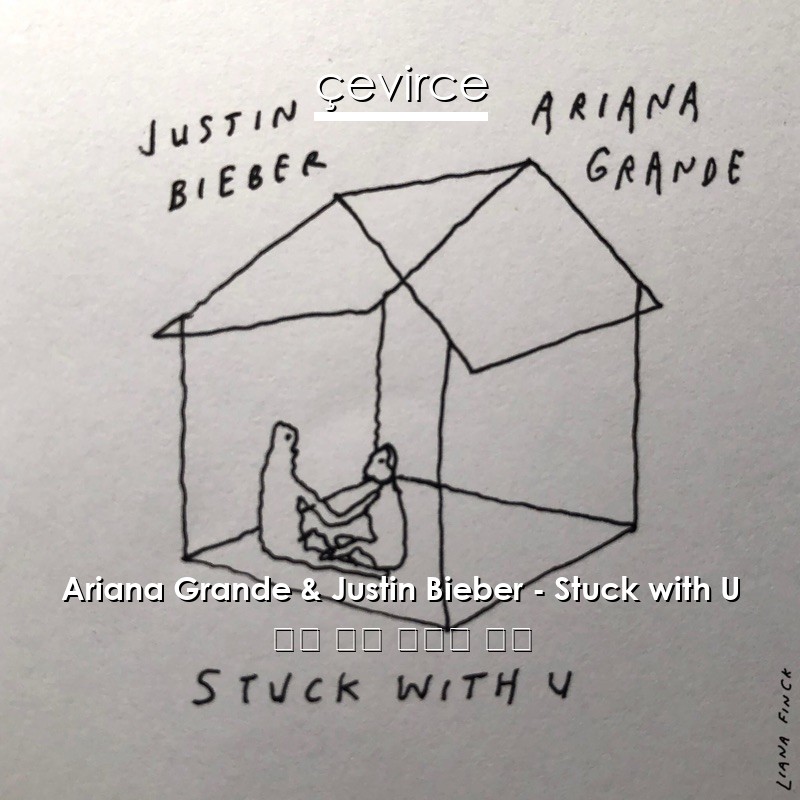 çevirce
JUSTIN
BIEBER
ARIANA
GRANDE
Ariana Grande & Justin Bieber - Stuck with U
STUCK WITH U
LIANA FINCK